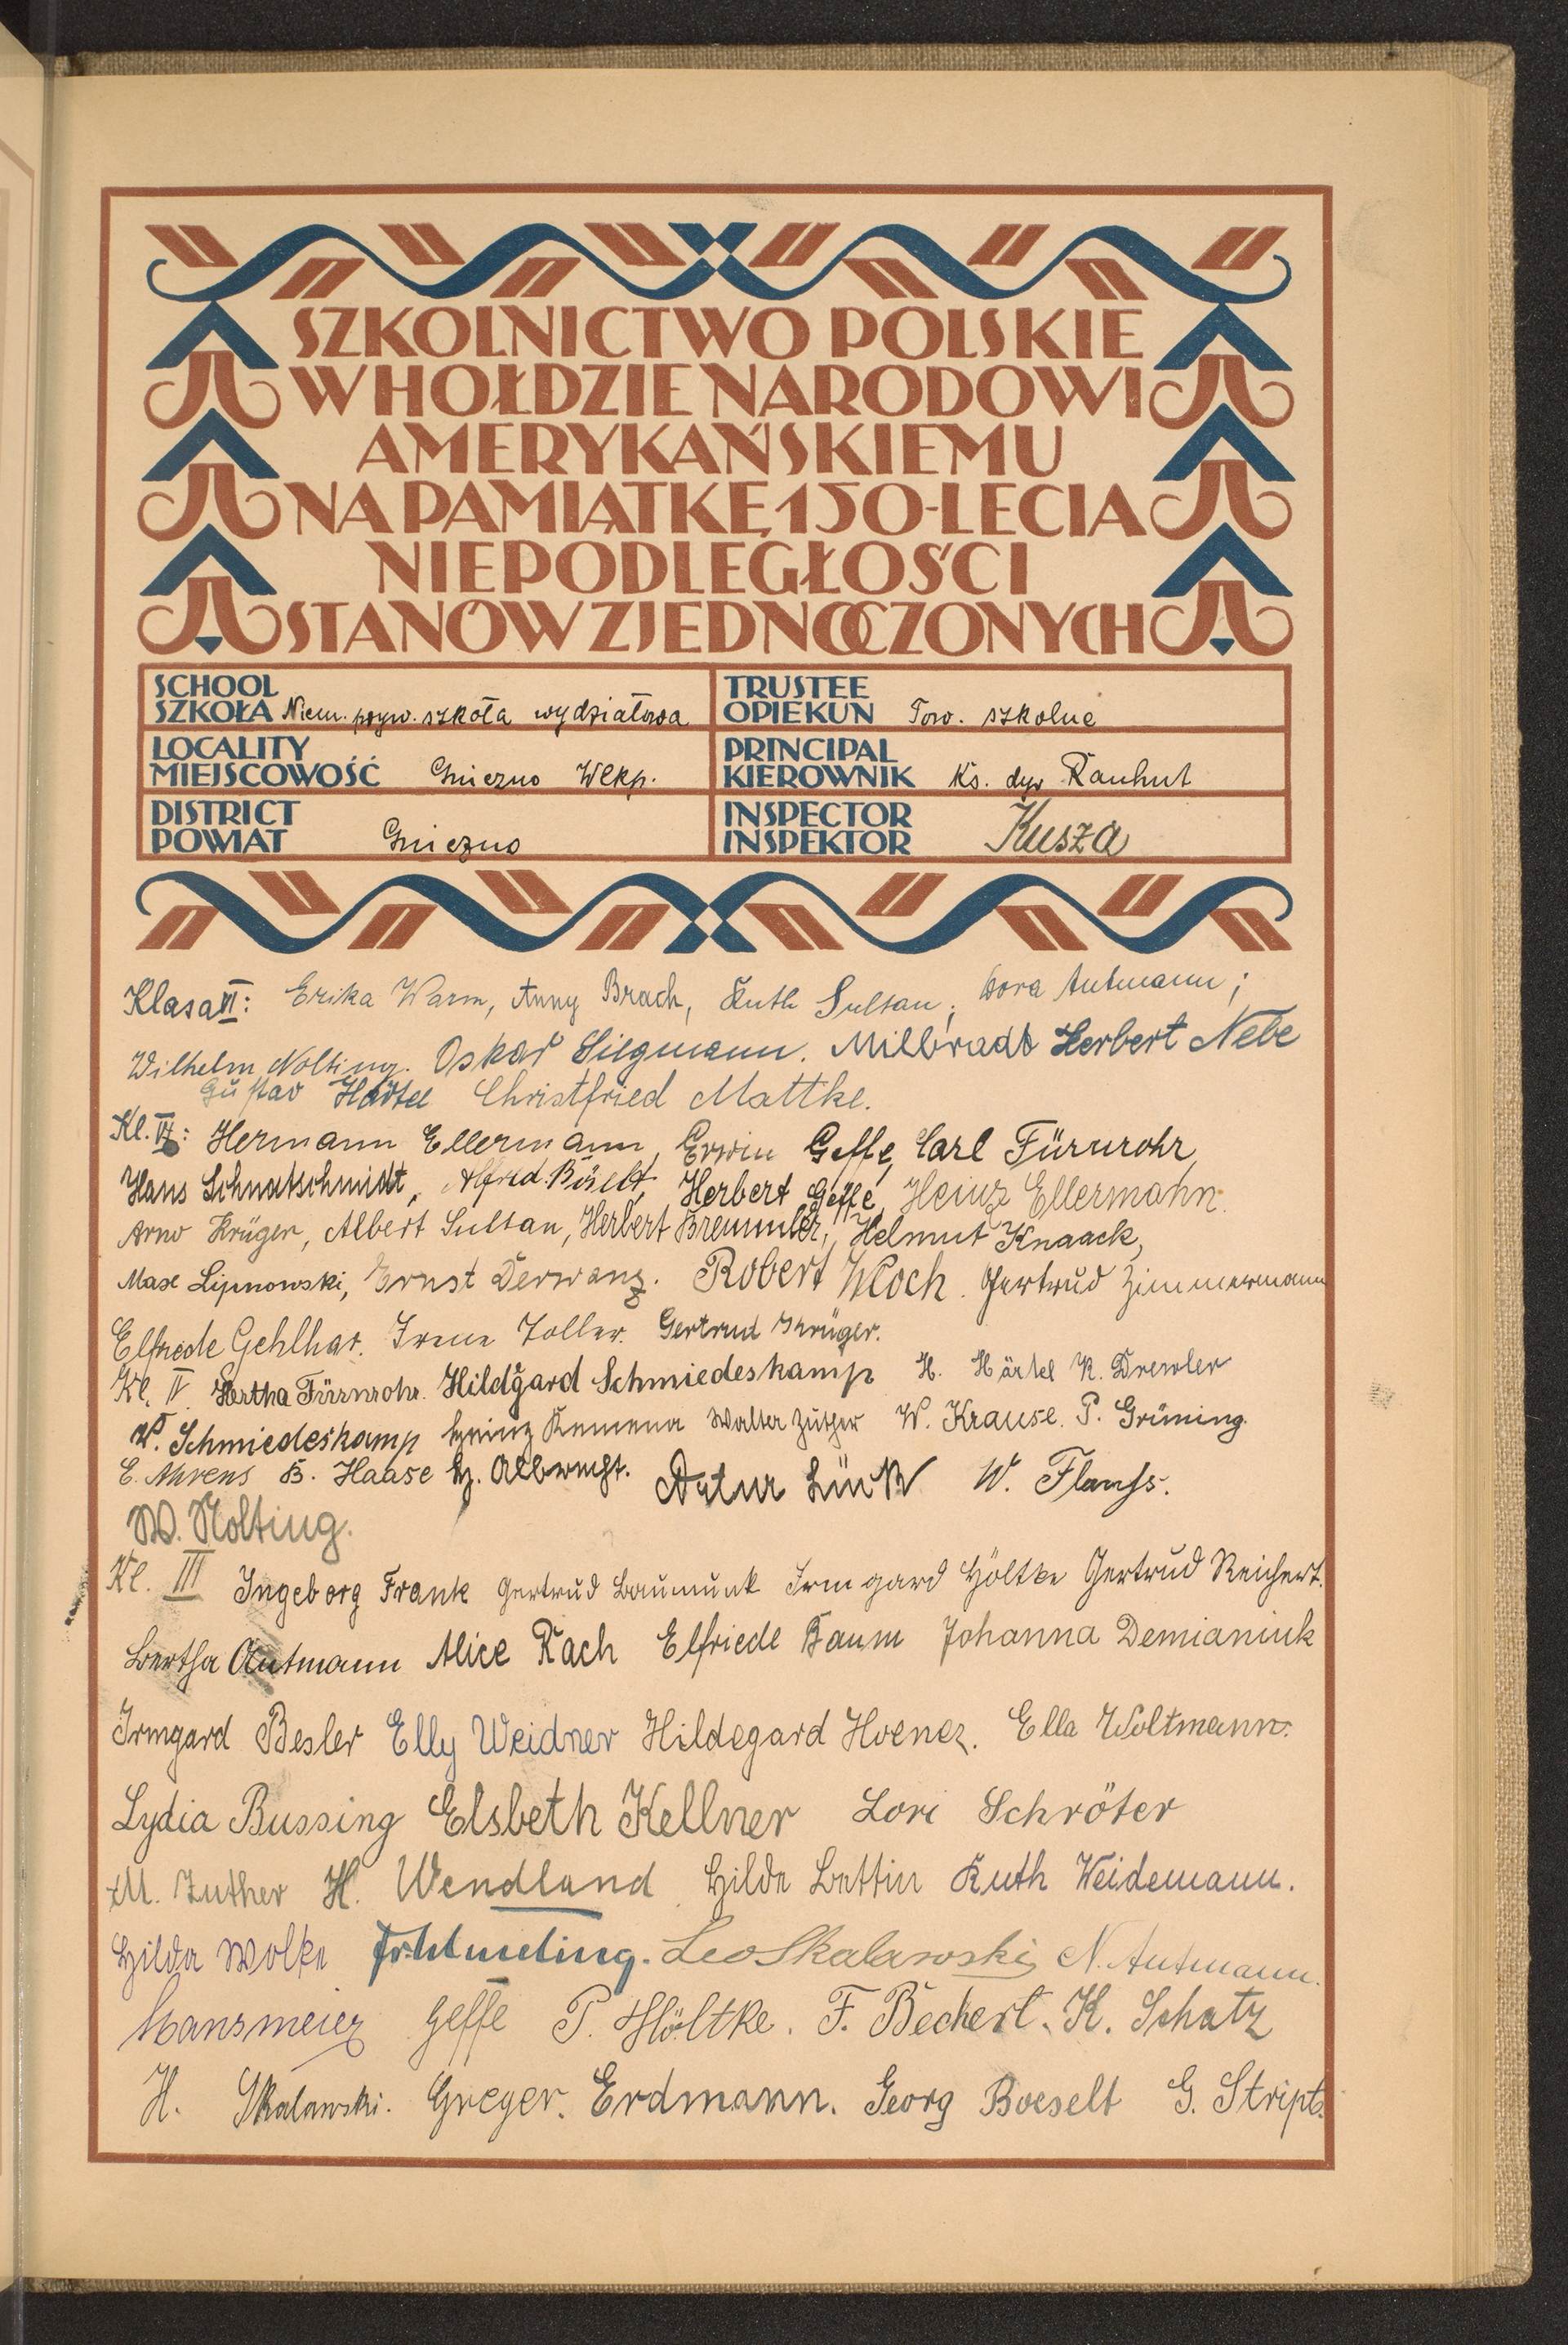 SZKOLNICTWO POLSKIE
W HOŁDZIE NARODOWI
AMERYKAŃSKIEMU
NA PAMIĄTKĘ 150-LECIA
NIEPODLEGŁOŚCI
STANÓW ZJEDNOCZONYCH
SCHOOL
SZKOŁA Niem. pryw. szkoła wydziałowa
TRUSTEE
OPIEKUN Tow. szkolne
LOCALITY
MIEJSCOWOŚĆ Gniezno Wlkp.
PRINCIPAL
KIEROWNIK Ks. dyr Rauhut
DISTRICT
POWIAT Gniezno
INSPECTOR
INSPEKTOR Kusza
Klasa VI: Erika Warm, Anny Brach, Ruth Sultan; Dora Autmann;
Wilhelm Nolting. Oskar Siegmann. Millbradt Herbert Nebe
Gustav Härtel Christfried Mattke.
Kl. : Hermann Ellermann, Erwin Geffe, Carl Fürnrohr,
Hans Schnatschmidt, Alfred Herbert Geffe, Heinz Ellermann.
Arno Krüger, Albert Sultan, Herbert Bremmler, Helmut Knaack,
Max Lipnowski, Ernst Derwanz. Robert Wloch. Gertrud Zimmermann
Elfriede Gehlhar. Irene Toller. Gertrud Krüger.
Kl. IV. Hertha Fürnrohr. Hildgard Schmiedeskamp H. Härtel K. Drewler
W. Schmiedeskamp Heinz Kemena Walter Zuther W. Krause. P. Grüning.
E. Ahrens B. Haase H. Albrecht. Artur Lück W. Flauss.
W. Nolting.
Kl. III Ingeborg Frank Gertrud Baumunk Irmgard Höltke Gertrud Reichert.
Bertha Autmann Alice Rach Elfriede Baum Johanna Demianiuk
Irmgard Besler Elly Weidner Hildegard Hoenez. Ella Woltmann.
Lydia Bussing Elsbeth Kellner Lori Schröter
M. Zuther H. Wendland Hilde Bettin Ruth Weidemann.
Hilda Wolke Leo Skalawski N. Autmann.
Hansmeier Geffe P. Höltke. F. Bechert. K. Schatz
H. Skalawski. Greger. Erdmann. Georg Boeselt G. Stript.